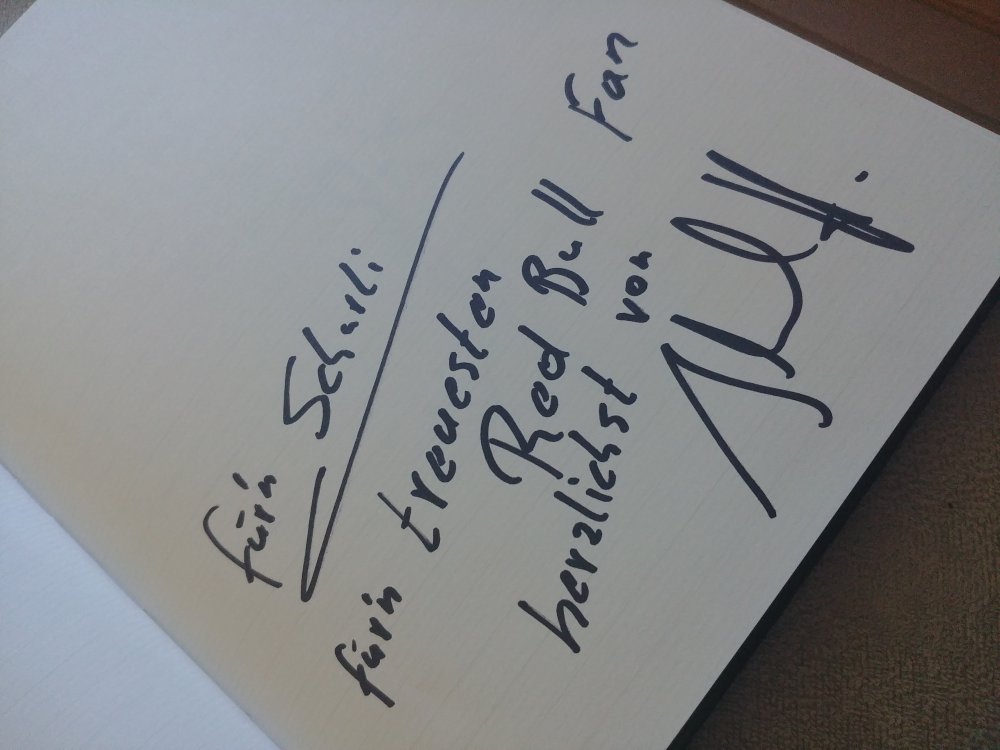 für'n Scharli
für'n treuesten
Red Bull Fan
herzlichst von